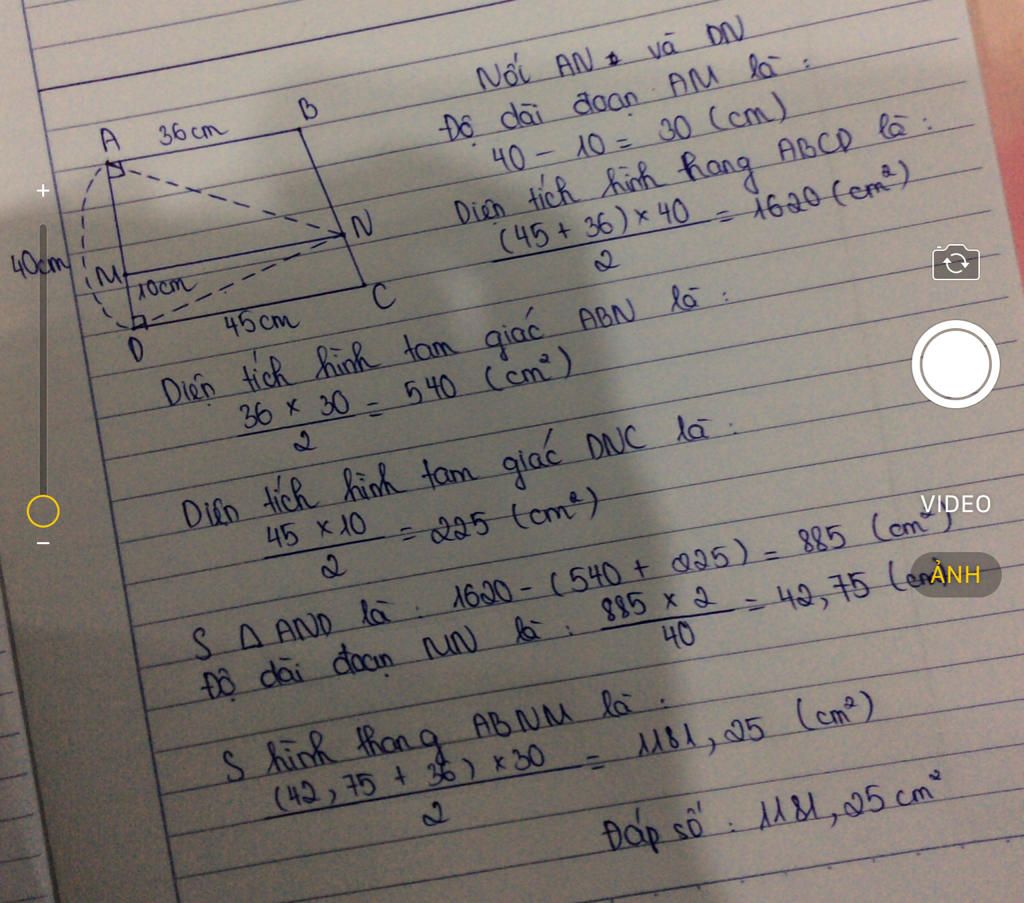 Nối AN và DN
Độ dài đoạn AM là :
40 - 10 = 30 (cm)
Diện tích hình thang ABCD là :
(45 + 36) × 40 / 2 = 1620 (cm²)
A 36cm B
40cm
M
N
10cm
D 45cm C
Diện tích hình tam giác ABN là :
36 × 30 / 2 = 540 (cm²)
Diện tích hình tam giác DNC là :
45 × 10 / 2 = 225 (cm²)
S Δ AND là : 1620 - (540 + 225) = 885 (cm²)
Độ dài đoạn MN là : 885 × 2 / 40 = 42,75 (cm
S hình thang ABNM là :
(42,75 + 36) × 30 / 2 = 1181,25 (cm²)
Đáp số : 1181,25 cm²
+
−
VIDEO
ẢNH